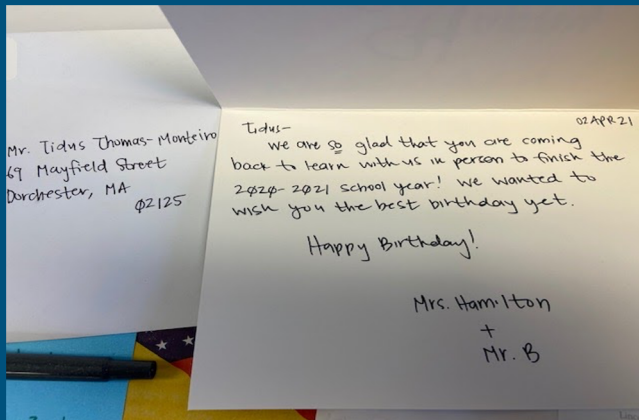 Mr. Tidus Thomas-Monteiro
69 Mayfield Street
Dorchester, MA
02125
02APR21
Tidus-
we are so glad that you are coming
back to learn with us in person to finish the
2020-2021 school year! we wanted to
wish you the best birthday yet.
Happy Birthday!
Mrs. Hamilton
+
Mr. B